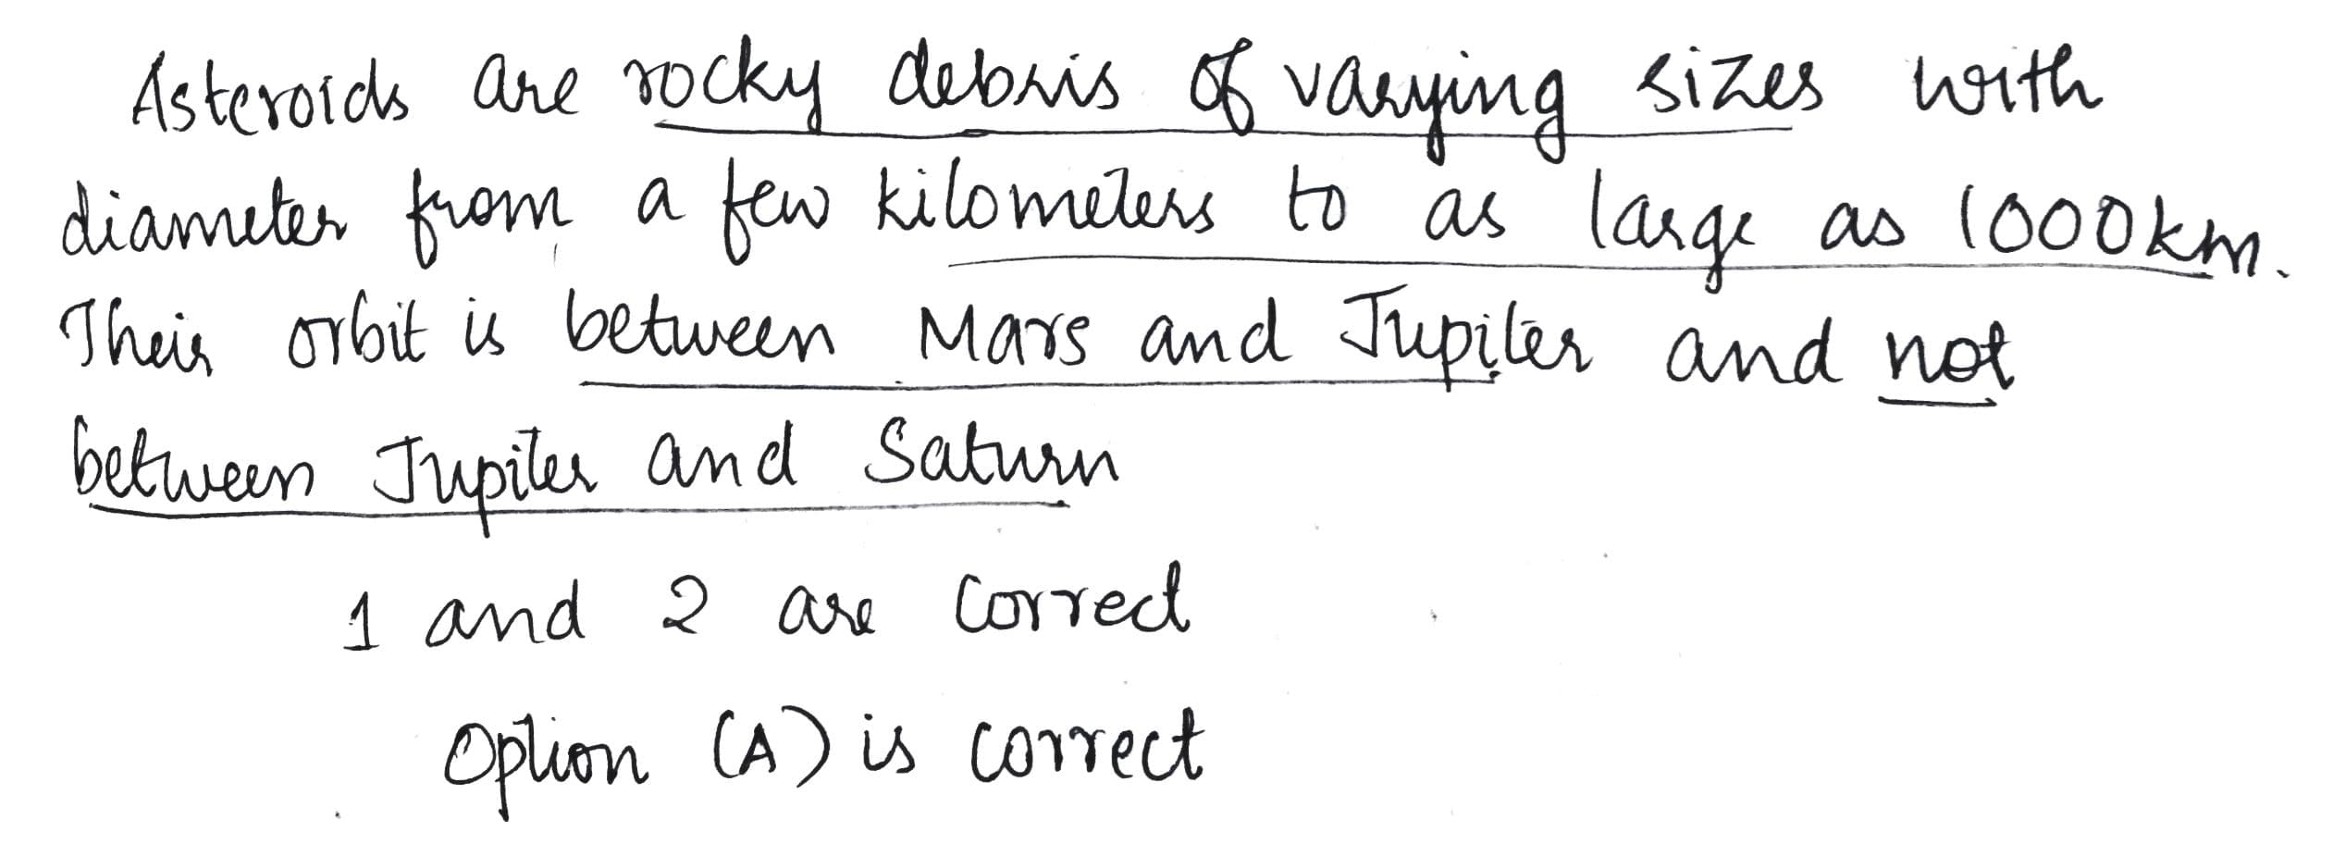 Asteroids are rocky debris of varying sizes with
diameter from a few kilometers to as large as 1000km.
Their orbit is between Mars and Jupiter and not
between Jupiter and Saturn
1 and 2 are correct
Option (A) is correct